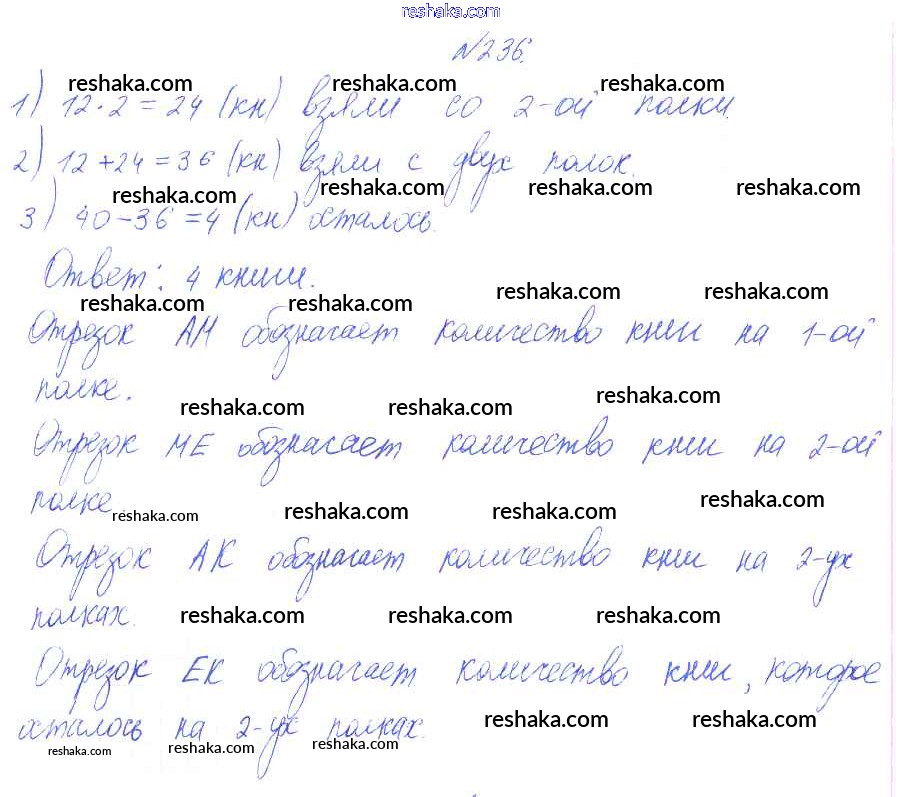 reshaka.com
№236.
reshaka.com reshaka.com reshaka.com
1) 12·2=24 (кн) взяли со 2-ой полки.
2) 12+24=36 (кн) взяли с двух полок.
reshaka.com reshaka.com reshaka.com reshaka.com
3) 40-36=4 (кн) осталось.
Ответ: 4 книги.
reshaka.com reshaka.com reshaka.com reshaka.com
Отрезок АМ обозначает количество книг на 1-ой
полке.
reshaka.com reshaka.com reshaka.com
Отрезок МЕ обозначает количество книг на 2-ой
полке
reshaka.com reshaka.com reshaka.com reshaka.com
Отрезок АК обозначает количество книг на 2-ух
полках.
reshaka.com reshaka.com reshaka.com
Отрезок ЕК обозначает количество книг, которое
осталось на 2-ух полках.
reshaka.com reshaka.com reshaka.com reshaka.com reshaka.com